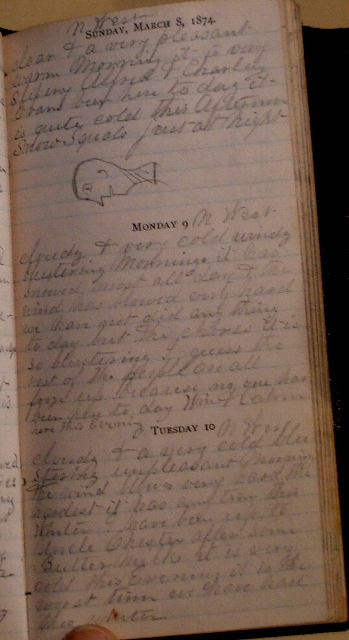 N West
SUNDAY, MARCH 8, 1874.
Clear & a very pleasant
warm Morning it is very
Alfred & Charley
Crane been here to day it
is quite cold this Afternoon
Snow Squals just at Night
MONDAY 9 N West
Cloudy & very cold windy
blustering Morning it has
snowed most all day & the
wind has blowed only hard
we han not did any thing
to day but the chores it is
so blustering I guess the
rest of the people are all
froze up because no one has
been here to day Wm & Calvin
here this Evening
TUESDAY 10 N West
Cloudy & a very cold blus
tering unpleasant Morning
the wind blows very hard the
hardest it has any time this
Winter I have been up to
Uncle Chester after some
Butter it is very
cold this Evening it is the
time we have had
this winter